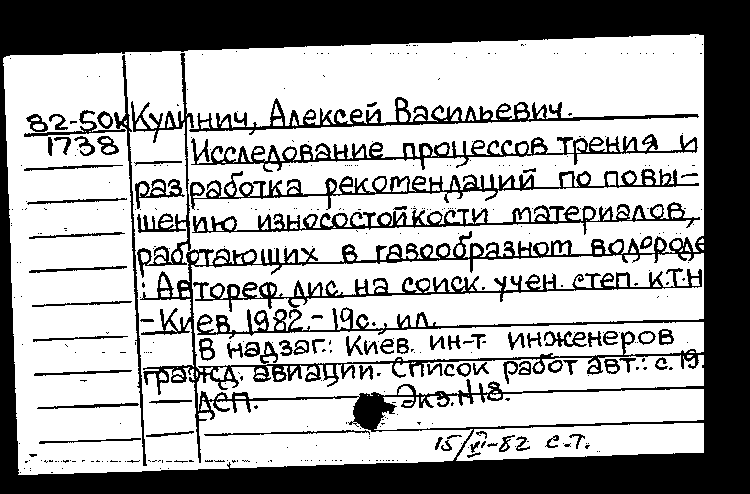 82-50к Кулинич, Алексей Васильевич.
1738 Исследование процессов трения и
разработка рекомендаций по повы-
шению износостойкости материалов,
работающих в газообразном водороде
: Автореф. дис. на соиск. учен. степ. к.т.н
- Киев, 1982. - 19с., ил.
В надзаг.: Киев. ин-т инженеров
гражд. авиации. Список работ авт.: с. 19.
ДСП. Экз. №18.
15/VI-82 с.т.